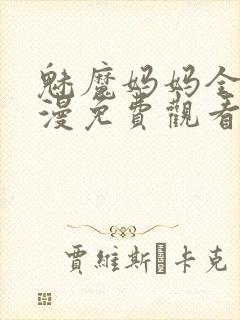 魅魔妈妈全
漫免費觀看
賈維斯 卡克